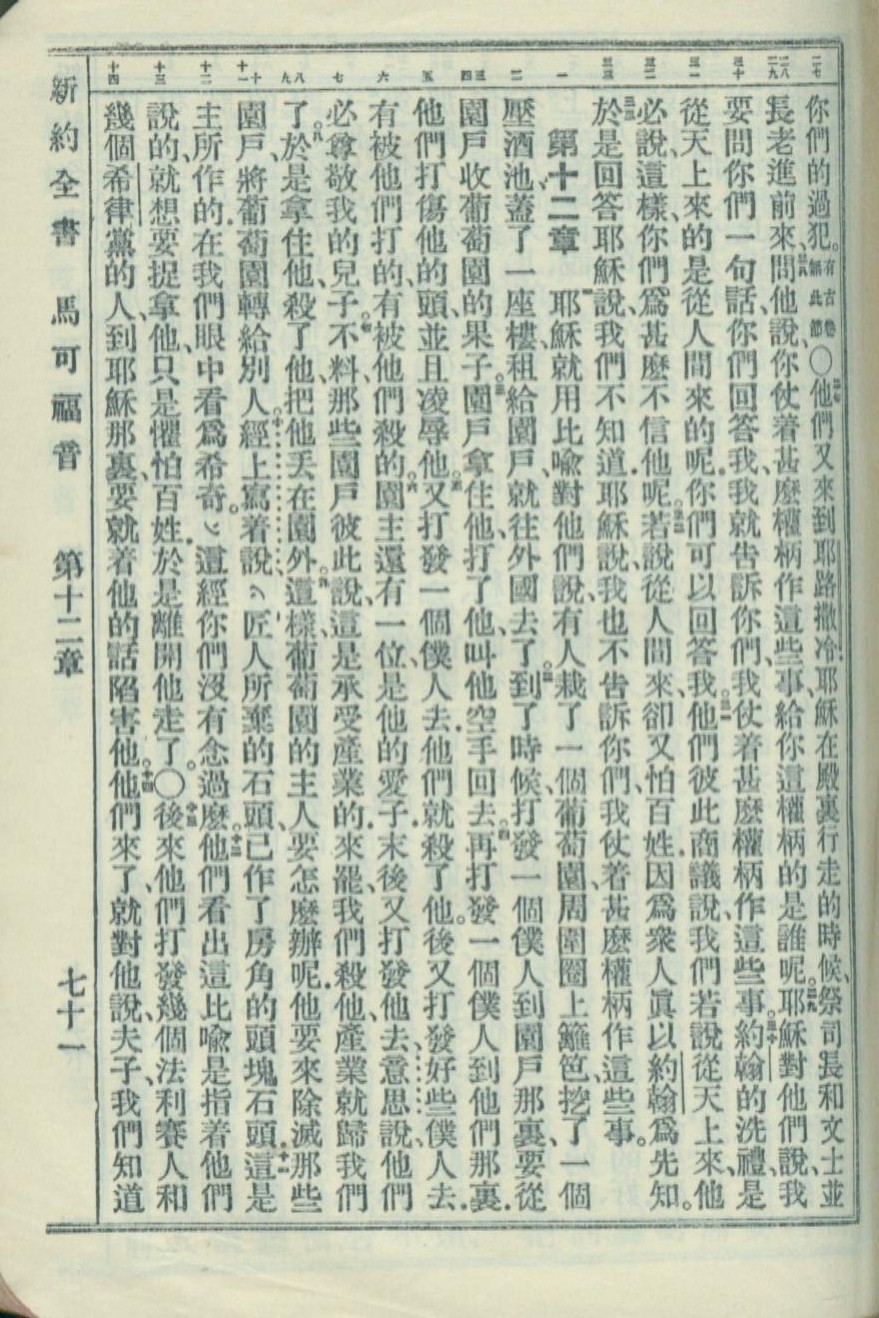 二七 二八 二九 三十 三一 三二 三三 一 二 三 四 五 六 七 八 九 十 十一 十二 十三 十四
你們的過犯。有古卷無此節〇二七他們又來到耶路撒冷、耶穌在殿裏行走的時候、祭司長和文士並
長老進前來、二八問他說、你仗着甚麽權柄作這些事、給你這權柄的是誰呢。二九耶穌對他們說、我
要問你們一句話、你們回答我、我就告訴你們、我仗着甚麽權柄作這些事。三十約翰的洗禮、是
從天上來的、是從人間來的呢、你們可以回答我。三一他們彼此商議說、我們若說從天上來、他
必說、這樣、你們爲甚麽不信他呢。三二若說從人間來、卻又怕百姓、因爲衆人眞以約翰爲先知。
三三於是回答耶穌說、我們不知道、耶穌說、我也不告訴你們、我仗着甚麽權柄作這些事。
第十二章 一耶穌就用比喩對他們說、有人栽了一個葡萄園、周圍圈上籬笆、挖了一個
壓酒池、蓋了一座樓、租給園戶、就往外國去了。二到了時候、打發一個僕人到園戶那裏、要從
園戶收葡萄園的果子。三園戶拿住他、打了他、叫他空手回去。四再打發一個僕人到他們那裏、
他們打傷他的頭、並且凌辱他。五又打發一個僕人去、他們就殺了他。後又打發好些僕人去、
有被他們打的、有被他們殺的。六園主還有一位、是他的愛子、末後又打發他去、意思說、他們
必尊敬我的兒子。七不料、那些園戶彼此說、這是承受產業的、來罷、我們殺他、產業就歸我們
了。八於是拿住他、殺了他、把他丟在園外。九這樣、葡萄園的主人、要怎麽辦呢、他要來除滅那些
園戶、將葡萄園轉給別人。十經上寫着說、匠人所棄的石頭、已作了房角的頭塊石頭、十一這是
主所作的、在我們眼中看爲希奇。這經你們沒有念過麽。十二他們看出這比喩是指着他們
說的、就想要捉拿他、只是懼怕百姓、於是離開他走了。〇十三後來他們打發幾個法利賽人和
幾個希律黨的人、到耶穌那裏、要就着他的話陷害他。十四他們來了、就對他說、夫子、我們知道
新約全書 馬可福音 第十二章 七十一